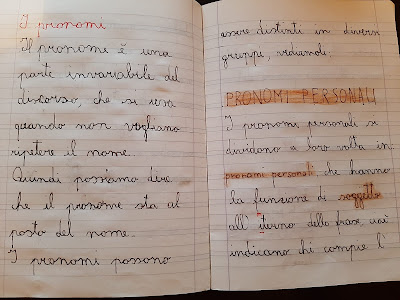 I pronomi
Il pronome è una
parte invariabile del
discorso, che si usa
quando non vogliamo
ripetere il nome.
Quindi possiamo dire
che il pronome sta al
posto del nome.
I pronomi possono
essere distinti in diversi
gruppi, vediamoli:
PRONOMI PERSONALI
I pronomi personali si
dividono a loro volta in:
pronomi personali che hanno
la funzione di soggetto
all' iterno della frase, cioè
indicano chi compie l'